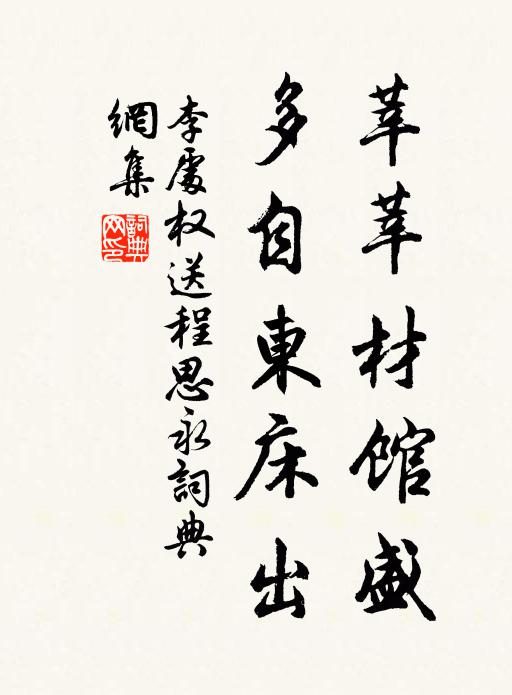 莘莘材馆盛
多自東床出
李處权送程思永詞典
網集
詞典
网印